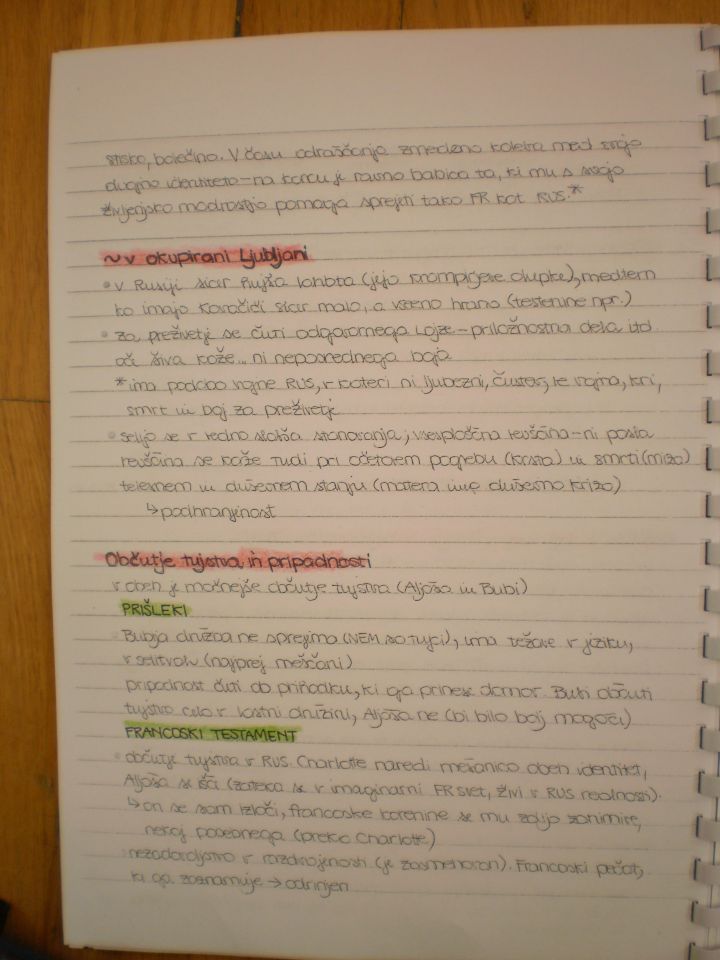 stisko, bolečino. V času odraščanja zmedeno koleba med svojo
dvojno identiteto - na koncu je ravno babica ta, ki mu s svojo
življenjsko modrostjo pomaga sprejeti tako FR kot RUS.*
~ v okupirani Ljubljani
• v Rusiji sicer hujša lakota (jejo krompirjeve olupke), medtem
ko imajo Kovačiči sicer malo, a vseeno hrano (testenine npr.)
• za preživetje se čuti odgovornega Lojze - priložnostna dela itd.
oče šiva kože... ni neposrednega boja
* ima podobo vojne RUS, v kateri ni ljubezni, čustev, le vojna, kri,
smrt in boj za preživetje
• selijo se v vedno slabša stanovanja, vsesplošna revščina - ni posla
revščina se kaže tudi pri očetovem pogrebu (krsta) in smrti (miza)
telesnem in duševnem stanju (mama ima duševno krizo)
↳ podhranjenost
Občutje tujstva in pripadnosti
v obeh je močnejše občutje tujstva (Aljoša in Bubi)
PRIŠLEKI
Bubija družba ne sprejema (NEM so tujci), ima težave v jeziku,
v selitvah (najprej meščani)
pripadnost čuti do prihodku, ki ga prinese domov. Bubi občuti
tujstvo celo v lastni družini, Aljoša ne (bi bilo bolj mogoče)
FRANCOSKI TESTAMENT
• občutje tujstva v RUS. Charlotte naredi mešanico obeh identitet,
Aljoša se išče (zateka se v imaginarni FR svet, živi v RUS realnosti).
↳ on se sam izloči, francoske korenine se mu zdijo zanimive,
nekaj posebnega (preko Charlotte)
nezadovoljstvo v razdvojenosti (je zasmehovan). Francoski pečat,
ki ga zaznamuje → odrinjen